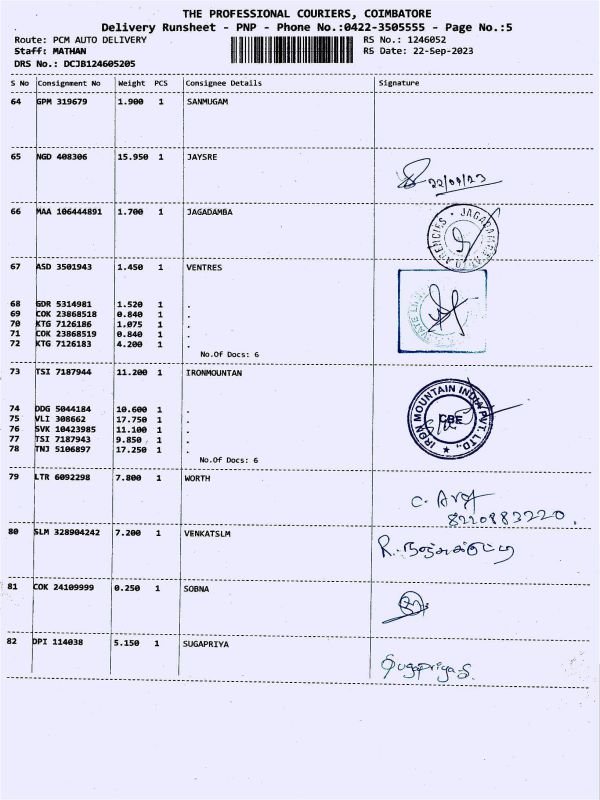 THE PROFESSIONAL COURIERS, COIMBATORE
Delivery Runsheet - PNP - Phone No.:0422-3505555 - Page No.:5
Route: PCM AUTO DELIVERY RS No.: 1246052
Staff: MATHAN RS Date: 22-Sep-2023
DRS No.: DCJB124605205
S No Consignment No Weight PCS Consignee Details Signature
64 GPM 319679 1.900 1 SANMUGAM
65 NGD 408306 15.950 1 JAYSRE
22/09/23
66 MAA 106444891 1.700 1 JAGADAMBA
67 ASD 3501943 1.450 1 VENTRES
68 GDR 5314981 1.520 1 .
69 COK 23868518 0.840 1 .
70 KTG 7126186 1.075 1 .
71 COK 23868519 0.840 1 .
72 KTG 7126183 4.200 1 .
No.Of Docs: 6
73 TSI 7187944 11.200 1 IRONMOUNTAN
IRON MOUNTAIN INDIA PVT. LTD.,
CBE
74 DDG 5044184 10.600 1 .
75 VLI 308662 17.750 1 .
76 SVK 10423985 11.100 1 .
77 TSI 7187943 9.850 1 .
78 TNJ 5106897 17.250 1 .
No.Of Docs: 6
79 LTR 6092298 7.800 1 WORTH
8220883220.
80 SLM 328904242 7.200 1 VENKATSLM
81 COK 24109999 0.250 1 SOBNA
82 DPI 114038 5.150 1 SUGAPRIYA
Sugapriya S.